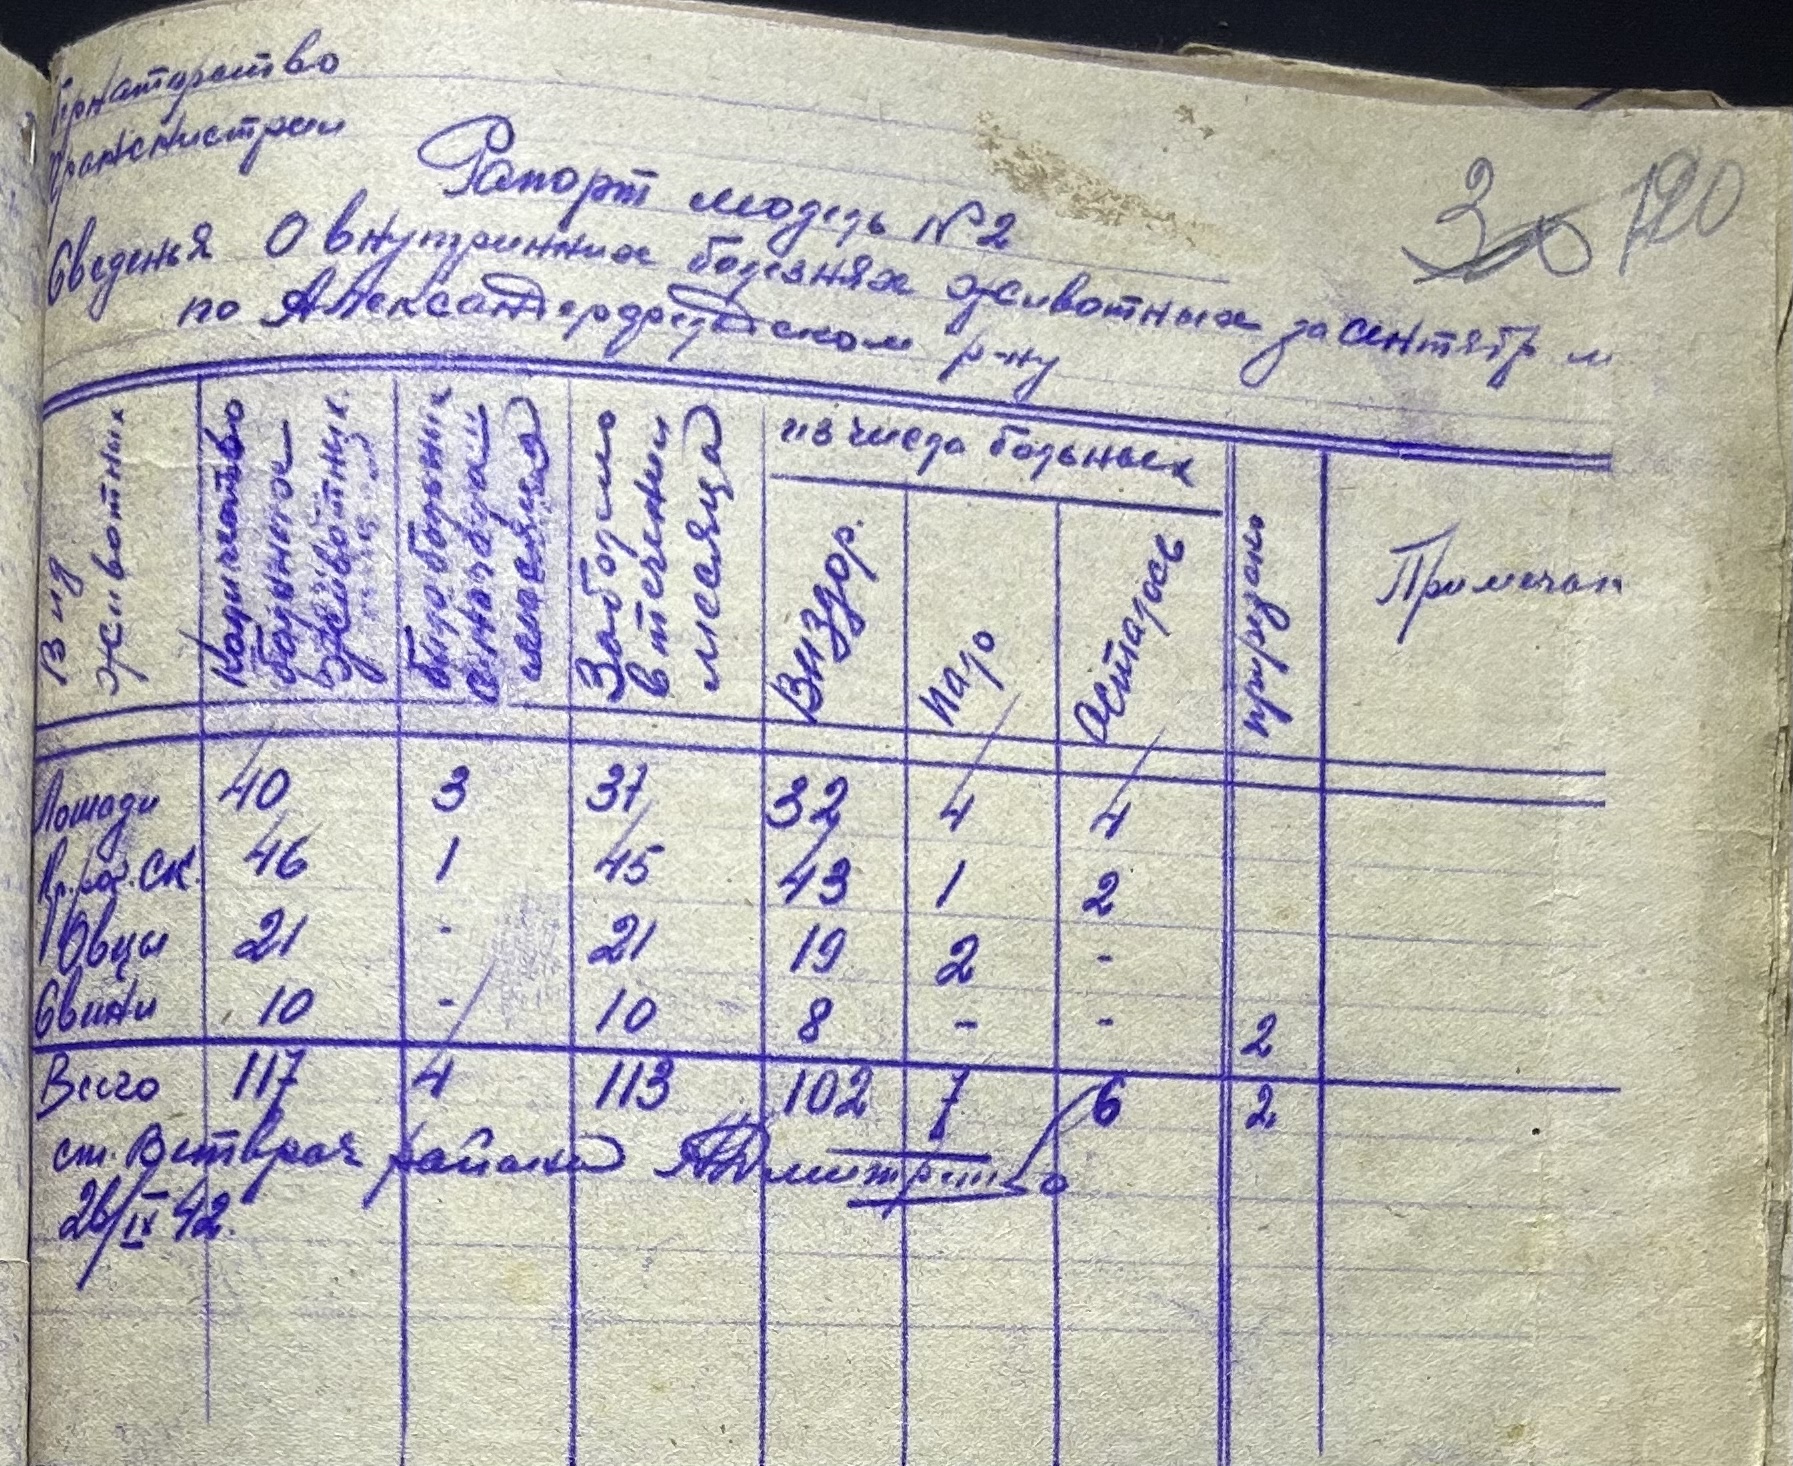 Транснистрии
120
Рапорт модель № 2
Сведенья о внутринних болезнях животных за сентябр м
по Александерфельдском р-ну
Вид животных
Количество больных животных
было больных с начала месяца
Заболело в течении месяца
из числа больных
Виздор.
пало
осталось
прирезано
Примечан
Лошади 40 3 37 32 4 4
Кр. рог. ск. 46 1 45 43 1 2
Овцы 21 - 21 19 2 -
Свини 10 - 10 8 - - 2
Всего 117 4 113 102 7 6 2
ст. Ветврач района
26/IX 42.